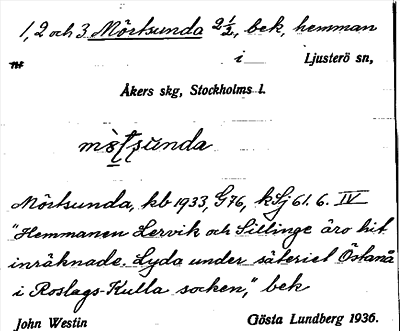 1, 2 och 3 Mörtsunda 2 1/2, bek, hemman
i Ljusterö sn,
Åkers skg, Stockholms l.
Mörtsunda, kb 1933, G76, kSj 61. 6. IV
"Hemmanen Lervik och Sillinge äro hit
inräknade. Lyda under säteriet Östanå
i Roslags-Kulla socken," bek
John Westin Gösta Lundberg 1936.